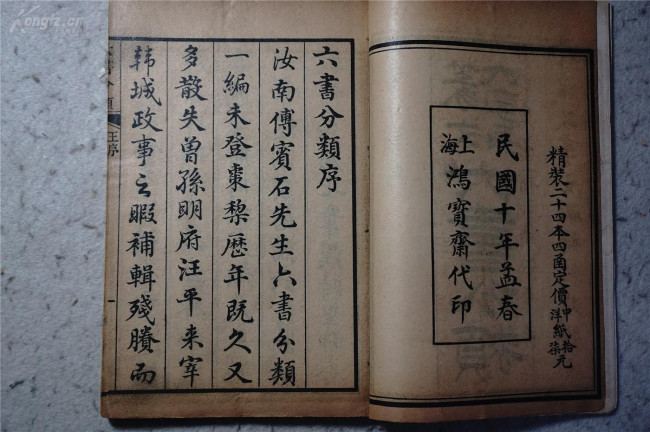 精裝二十四本四函定價中紙拾元
洋紙柒元
民國十年孟春
上海鴻寶齋代印
六書分類序
汝南傅賓石先生六書分類
一編未登棗梨歷年既久又
多散失曾孫明府汪平來宰
韩城政事之暇補輯殘賸而
王序
一
Kongfz.cn